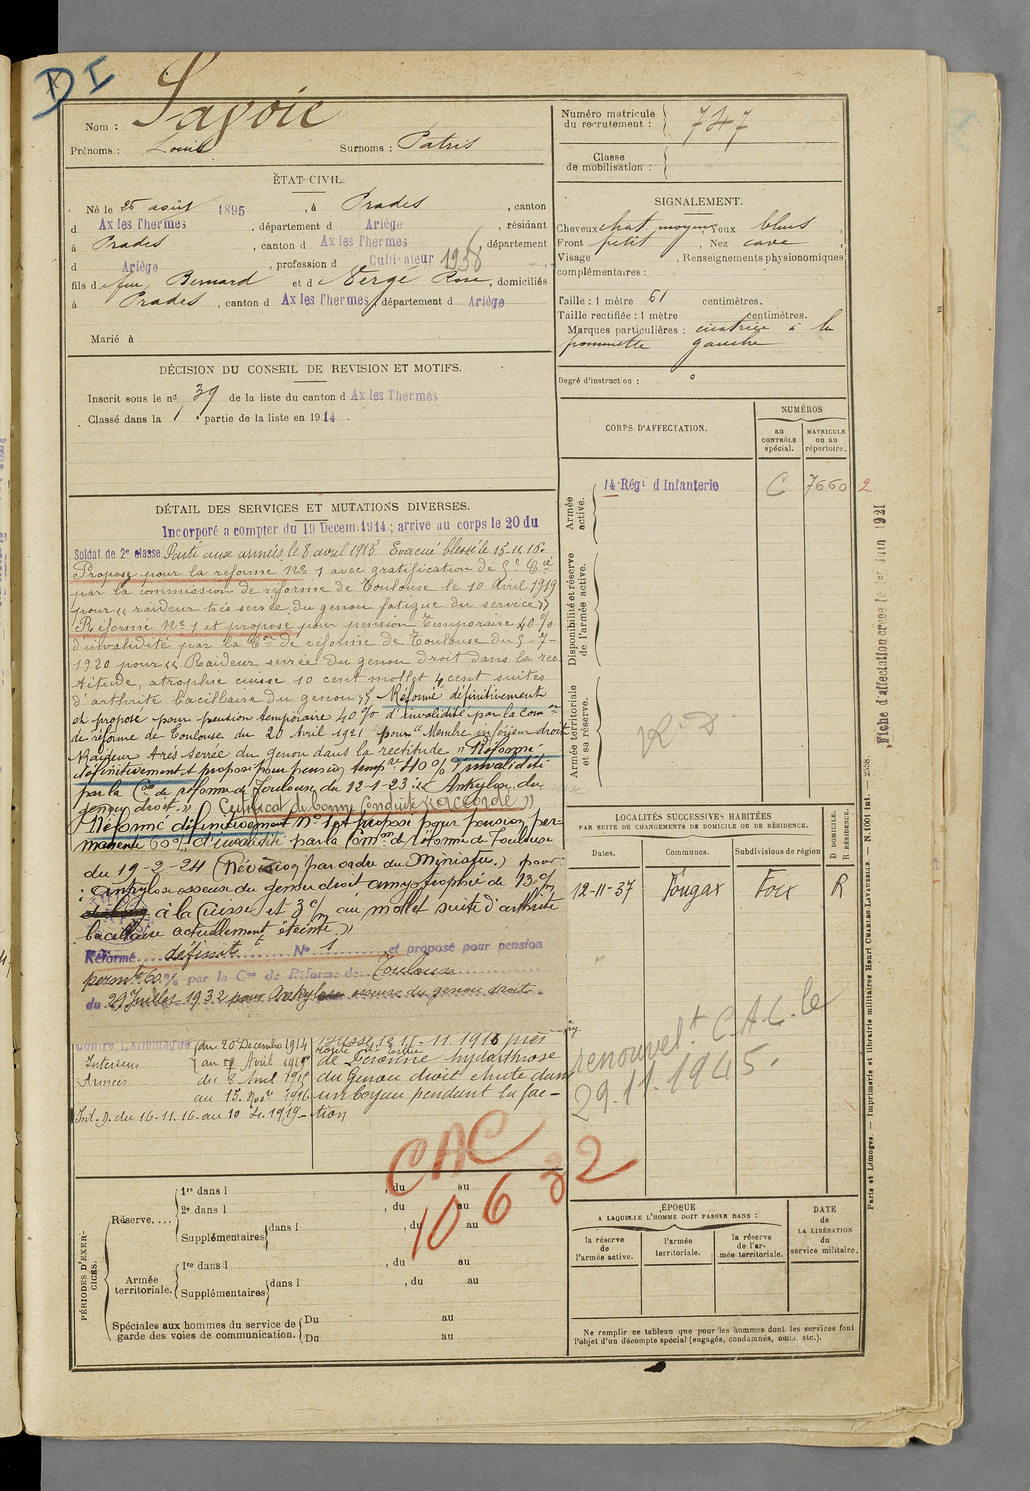 DI
Nom : Savoie
Prénoms : Louis Surnoms : Patris
Numéro matricule du recrutement : 747
Classe de mobilisation :
ÉTAT CIVIL.
Né le 25 août 1895, à Prades, canton
d Ax les Thermes, département d Ariège, résidant
à Prades, canton d Ax les Thermes département
d Ariège, profession d Cultivateur 1938
fils d feu Bernard et d Vergé Rose, domiciliés
à Prades, canton d Ax les Thermes, département d Ariège
Marié à
SIGNALEMENT.
Cheveux chat. moyens, Yeux bleus
Front petit, Nez cave
Visage , Renseignements physionomiques
complémentaires :
Taille : 1 mètre 61 centimètres.
Taille rectifiée : 1 mètre centimètres.
Marques particulières : cicatrice à la
pommette gauche
Degré d'instruction : 0
DÉCISION DU CONSEIL DE REVISION ET MOTIFS.
Inscrit sous le no 39 de la liste du canton d Ax les Thermes
Classé dans la 1 partie de la liste en 1914.
DÉTAIL DES SERVICES ET MUTATIONS DIVERSES.
Incorporé a compter du 19 Decem. 1914; arrivé au corps le 20 du
Soldat de 2e classe Parti aux armées le 8 avril 1915. Evacué blessé le 15.11.16.
Proposé pour la réforme No 1 avec gratification de 5e Cie
par la commission de réforme de Toulouse le 10 Avril 1919
pour « raideur très serrée du genou fatigue du service »
Réformé No 1 et proposé pour pension Temporaire 40 %
d'invalidité par la Con de réforme de Toulouse du 5-7-
1920 pour « Raideur serrée du genou droit dans la rec
titude, atrophie cuisse 10 cent mollet 4 cent suites
d'arthrite bacillaire du genou » Réformé définitivement
et proposé pour pension temporaire 40 % d'invalidité par la Comon
de réforme de Toulouse du 20 Avril 1921 pour "Membre inférieur droit
Raideur très serrée du genou dans la rectitude » Réformé
définitivement et proposé pour pension tempre 40 % d'invalidité
par la Con de réforme de Toulouse du 12-1-23 : « Ankylose du
genou droit. » Certificat de bonne Conduite « accordé »
Réformé définitivement No 1 et proposé pour pension per-
manente 60 % d'invalidité par la Comon de réforme de Toulouse
du 19-2-24 (Révision par ordre du Ministre.) pour :
: Ankylose osseuse du genou droit amyotrophie de 13 c/m
à la Cuisse et 3 c/m au mollet suite d'arthrite
bacillaire actuellement éteinte. »
Réformé définitt No 1 et proposé pour pension
permte 60 % par la Con de Réforme de Toulouse
du 29 Juillet 1932 pour Ankylose osseuse du genou droit
Contre l'Allemagne
Intérieur { du 20 Décembre 1914
au 7 Avril 1915
Armées du 8 Avril 1915
au 15. Nove 1916
Int. D. du 16-11.16. au 10 4. 1919
Blessé le 15-11-1916 près
de Péronne hydarthrose
du Genou droit chute dans
un boyau pendant la fac-
tion
CORPS D'AFFECTATION.
NUMÉROS
au CONTRÔLE spécial.
MATRICULE ou au répertoire.
Armée active.
14 Régt d'Infanterie C 7660 2
Disponibilité et réserve de l'armée active.
Armée territoriale et sa réserve.
R.D
LOCALITÉS SUCCESSIVES HABITÉES
PAR SUITE DE CHANGEMENTS DE DOMICILE OU DE RÉSIDENCE.
Dates. Communes. Subdivisions de région
D DOMICILE. R RÉSIDENCE.
12-11-37 Fougax Foix R
renouvelt. C.A.C. le
29.11.1945.
CAC
10 6 32
PÉRIODES D'EXERCICES.
Réserve.... 1re dans l , du au
2e dans l , du au
Supplémentaires dans l , du au
Armée territoriale. 1re dans l , du au
Supplémentaires dans l , du au
Spéciales aux hommes du service de Du au
garde des voies de communication. Du au
ÉPOQUE
A LAQUELLE L'HOMME DOIT PASSER DANS :
la réserve de l'armée active.
l'armée territoriale.
la réserve de l'armée territoriale.
DATE de LA LIBÉRATION du service militaire.
Ne remplir ce tableau que pour les hommes dont les services font
l'objet d'un décompte spécial (engagés, condamnés, omis, etc.).
Fiche d'affectation créée le 1er Juin 1921
Paris et Limoges. — Imprimerie et librairie militaires Henri CHARLES-LAVAUZELLE. — N. 1001 int. — 2358.